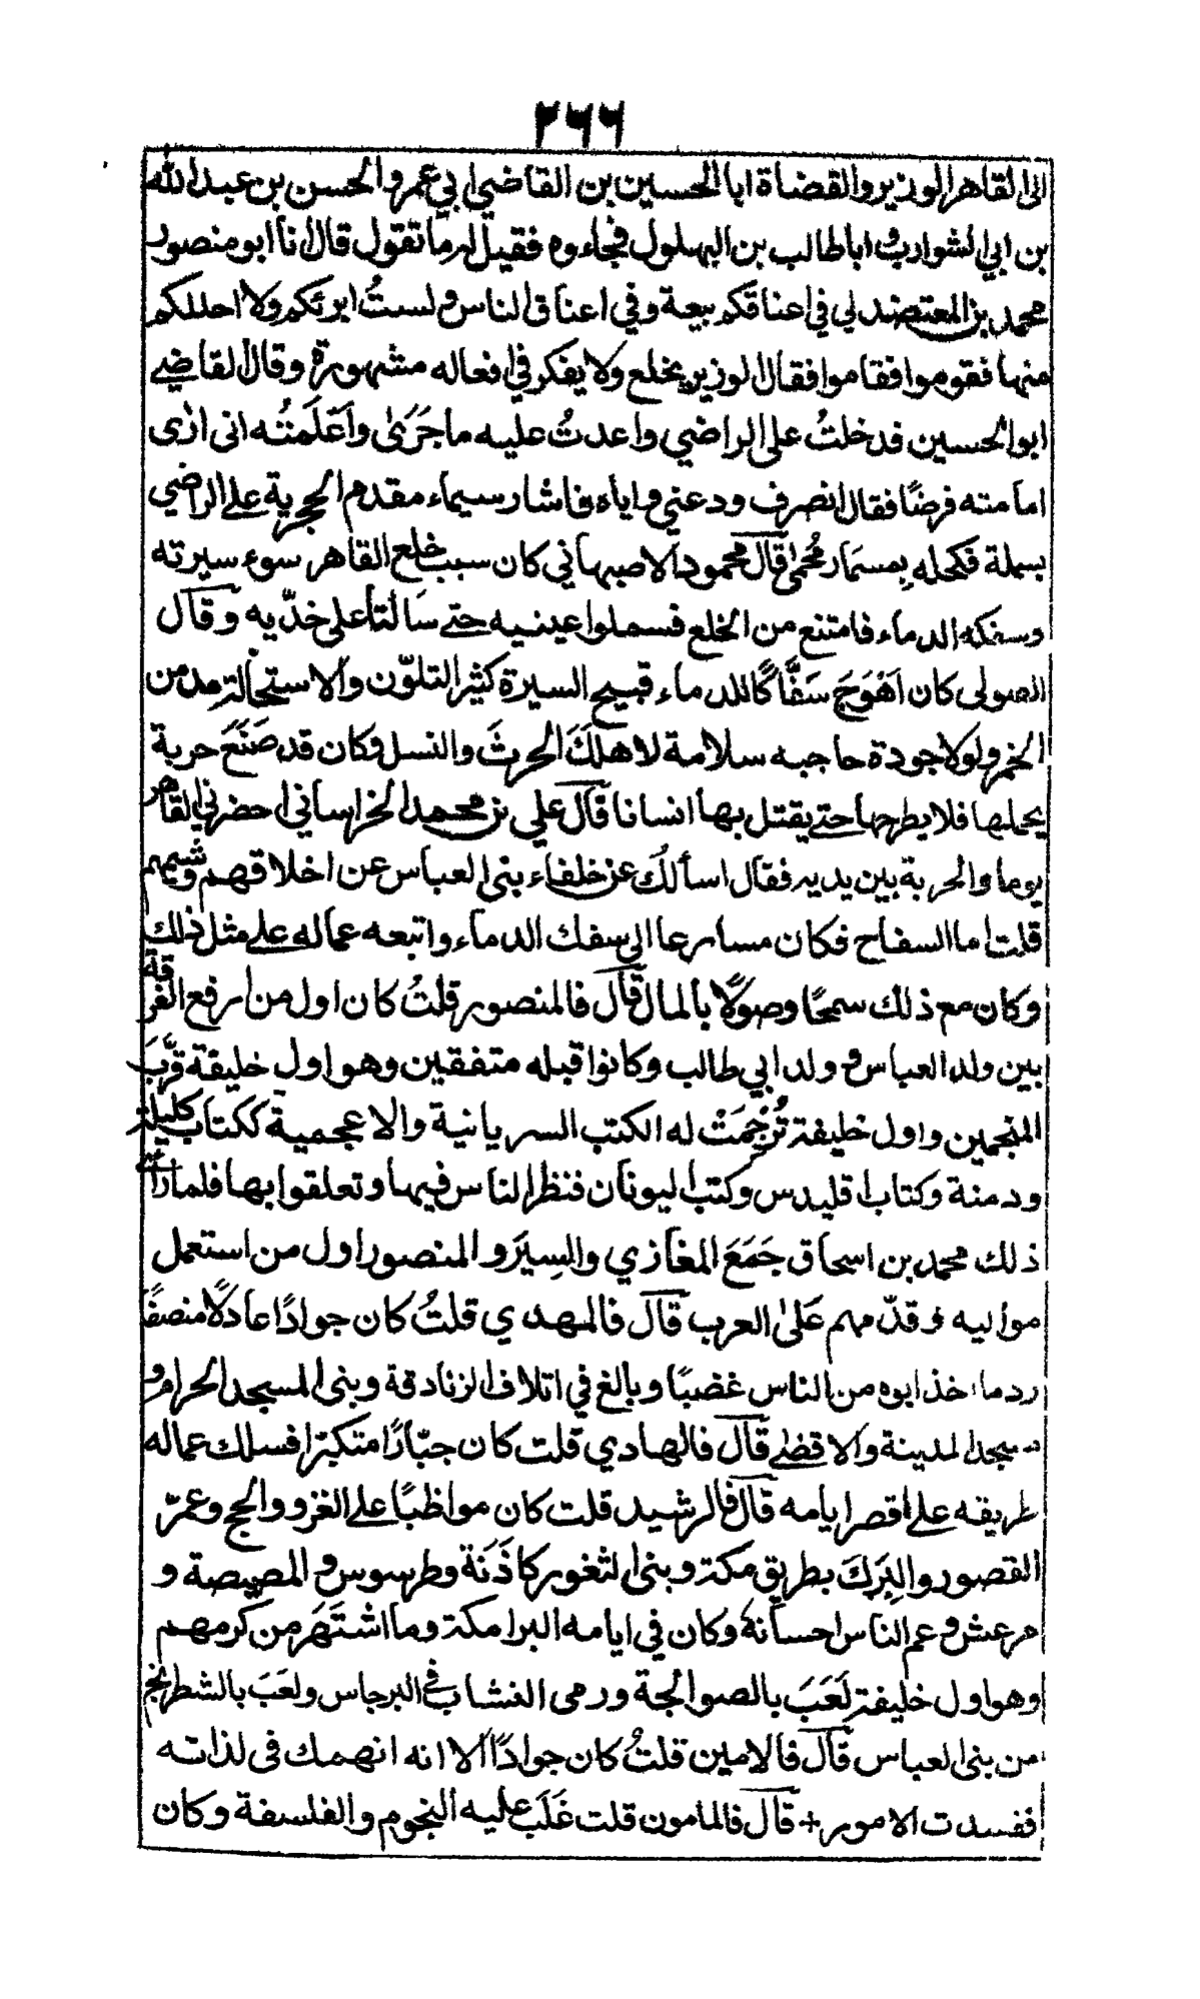 ٢٦٦
الى القاهر الوزير والقضاة ابا الحسين بن القاضي ابي عمر والحسن بن عبد الله
بن ابي الشوارب و ابا طالب بن البهلول فجاءوه فقيل له ما تقول قال انا ابو منصور
محمد بن المعتضد لي في اعناقكم بيعة وفي اعناق الناس و لستُ ابرئكم ولا احللكم
منها فقوموا فقاموا فقال الوزير يخلع ولا يفكر في افعاله مشهورة وقال القاضي
ابو الحسين فدخلتُ على الراضي واعدتُ عليه ما جَرَىٰ وأَعْلَمتُه انى ارى
امامته فرضًا فقال انصرف ودعني و اياه فاشار سيماء مقدم الحجرية على الراضي
بسملة فكحله بِمسمَار مُحمى قال محمود الاصبهاني كان سبب خلع القاهر سوء سيرته
وسفكه الدماء فامتنع من الخلع فسملوا عينيه حتى سَالتَا على خدّيه وقال
الصولى كان اَهْوَجَ سَفَّاكًا للدماء قبيح السيرة كثير التلوّن والاستحالة مدمن
الخمر ولولا جودة حاجبه سلامة لاهلَكَ الحرثَ والنسل وكان قد صَنَعَ حربة
يحملها فلا يطرحها حتى يقتل بها انسانا قال علي بن محمد الخراساني احضرني القاهر
يوما والحربة بين يديه فقال اسألُكَ عن خلفاء بنى العباس عن اخلاقهم وشيمهم
قلت اما السفاح فكان مسارعا الى سفك الدماء واتبعه عماله على مثل ذلك
وكان مع ذلك سمحًا وصولًا بالمال قال فالمنصور قلتُ كان اول من ارفع الفرقة
بين ولد العباس و ولد ابي طالب وكانوا قبله متفقين وهو اول خليفة قرَّبَ
المنجمين واول خليفة تُرْجِمَتْ له الكتب السريانية والاعجمية ككتاب كليلة
ودمنة وكتاب اقليدس وكتب اليونان فنظر الناس فيها وتعلقوا بها فلما رأى
ذلك محمد بن اسحاق جَمَعَ المغازي والسِيَر و المنصور اول من استعمل
مواليه وقدّمهم عَلىٰ العرب قال فالمهدي قلتُ كان جوادًا عادلًا منصفًا
رد ما اخذ ابوه من الناس غضبًا وبالغ في اتلاف الزنادقة وبنى المسجد الحرام و
مسجد المدينة والاقصى قال فالهادي قلت كان جبّارًا متكبّرا فسلك عماله
طريقه على قصر ايامه قال فالرشيد قلت كان مواظبًا على الغزو والحج وعمّر
القصور والبِرَكَ بطريق مكة وبنى الثغور كاذَنَة وطرسوس و المصيصة و
مرعش و عم الناس احسانهُ وكان في ايامه البرامكة وما اشتَهَر من كرمهم
وهو اول خليفة لَعَبَ بالصوالجة ورمى النشاب في البرجاس ولعَبَ بالشطرنج
من بنى العباس قال فالامين قلتُ كان جوادًا الا انه انهمك فى لذاته
ففسدت الامور + قال فالمامون قلت غَلَبَ عليه النجوم والفلسفة وكان